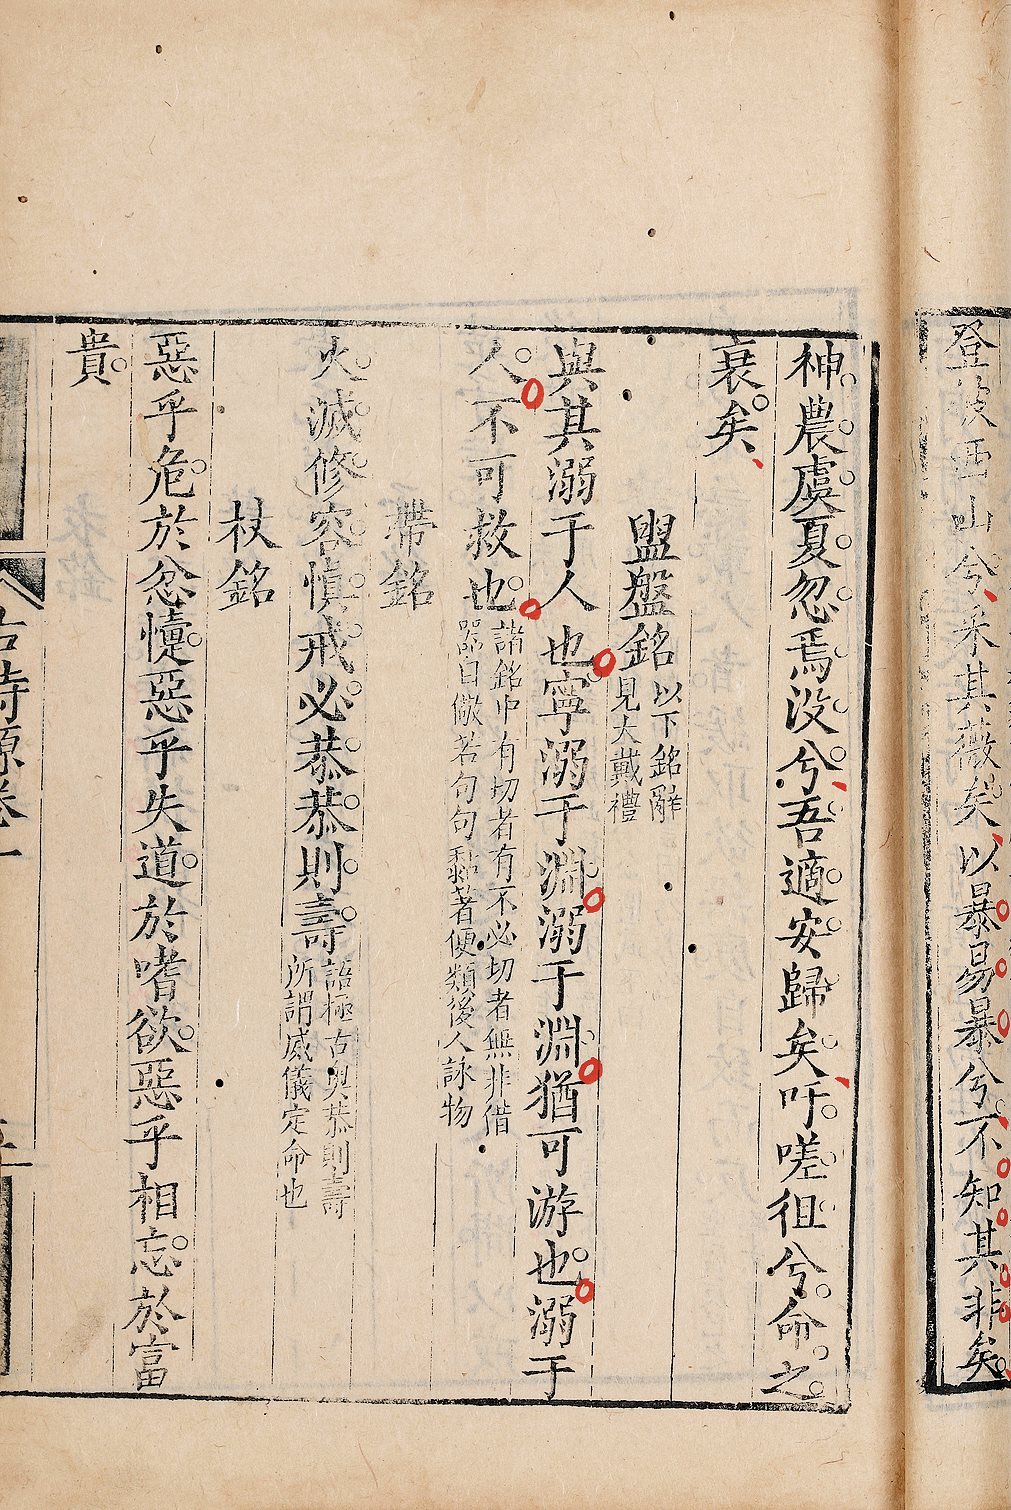 登彼西山兮采其薇矣以暴易暴兮不知其非矣
神農虞夏忽焉没兮吾適安歸矣吁嗟徂兮命之
衰矣
盥盤銘
以下銘辭
見大戴禮
與其溺于人也寧溺于淵溺于淵猶可游也溺于
人不可救也
諸銘中有切者有不必切者無非借
器自儆若句句黏着便類後人詠物
帶銘
火滅修容慎戒必恭恭則壽
語極古奥恭則壽
所謂威儀定命也
杖銘
惡乎危於忿懥惡乎失道於嗜欲惡乎相忘於富
貴
古詩源卷一